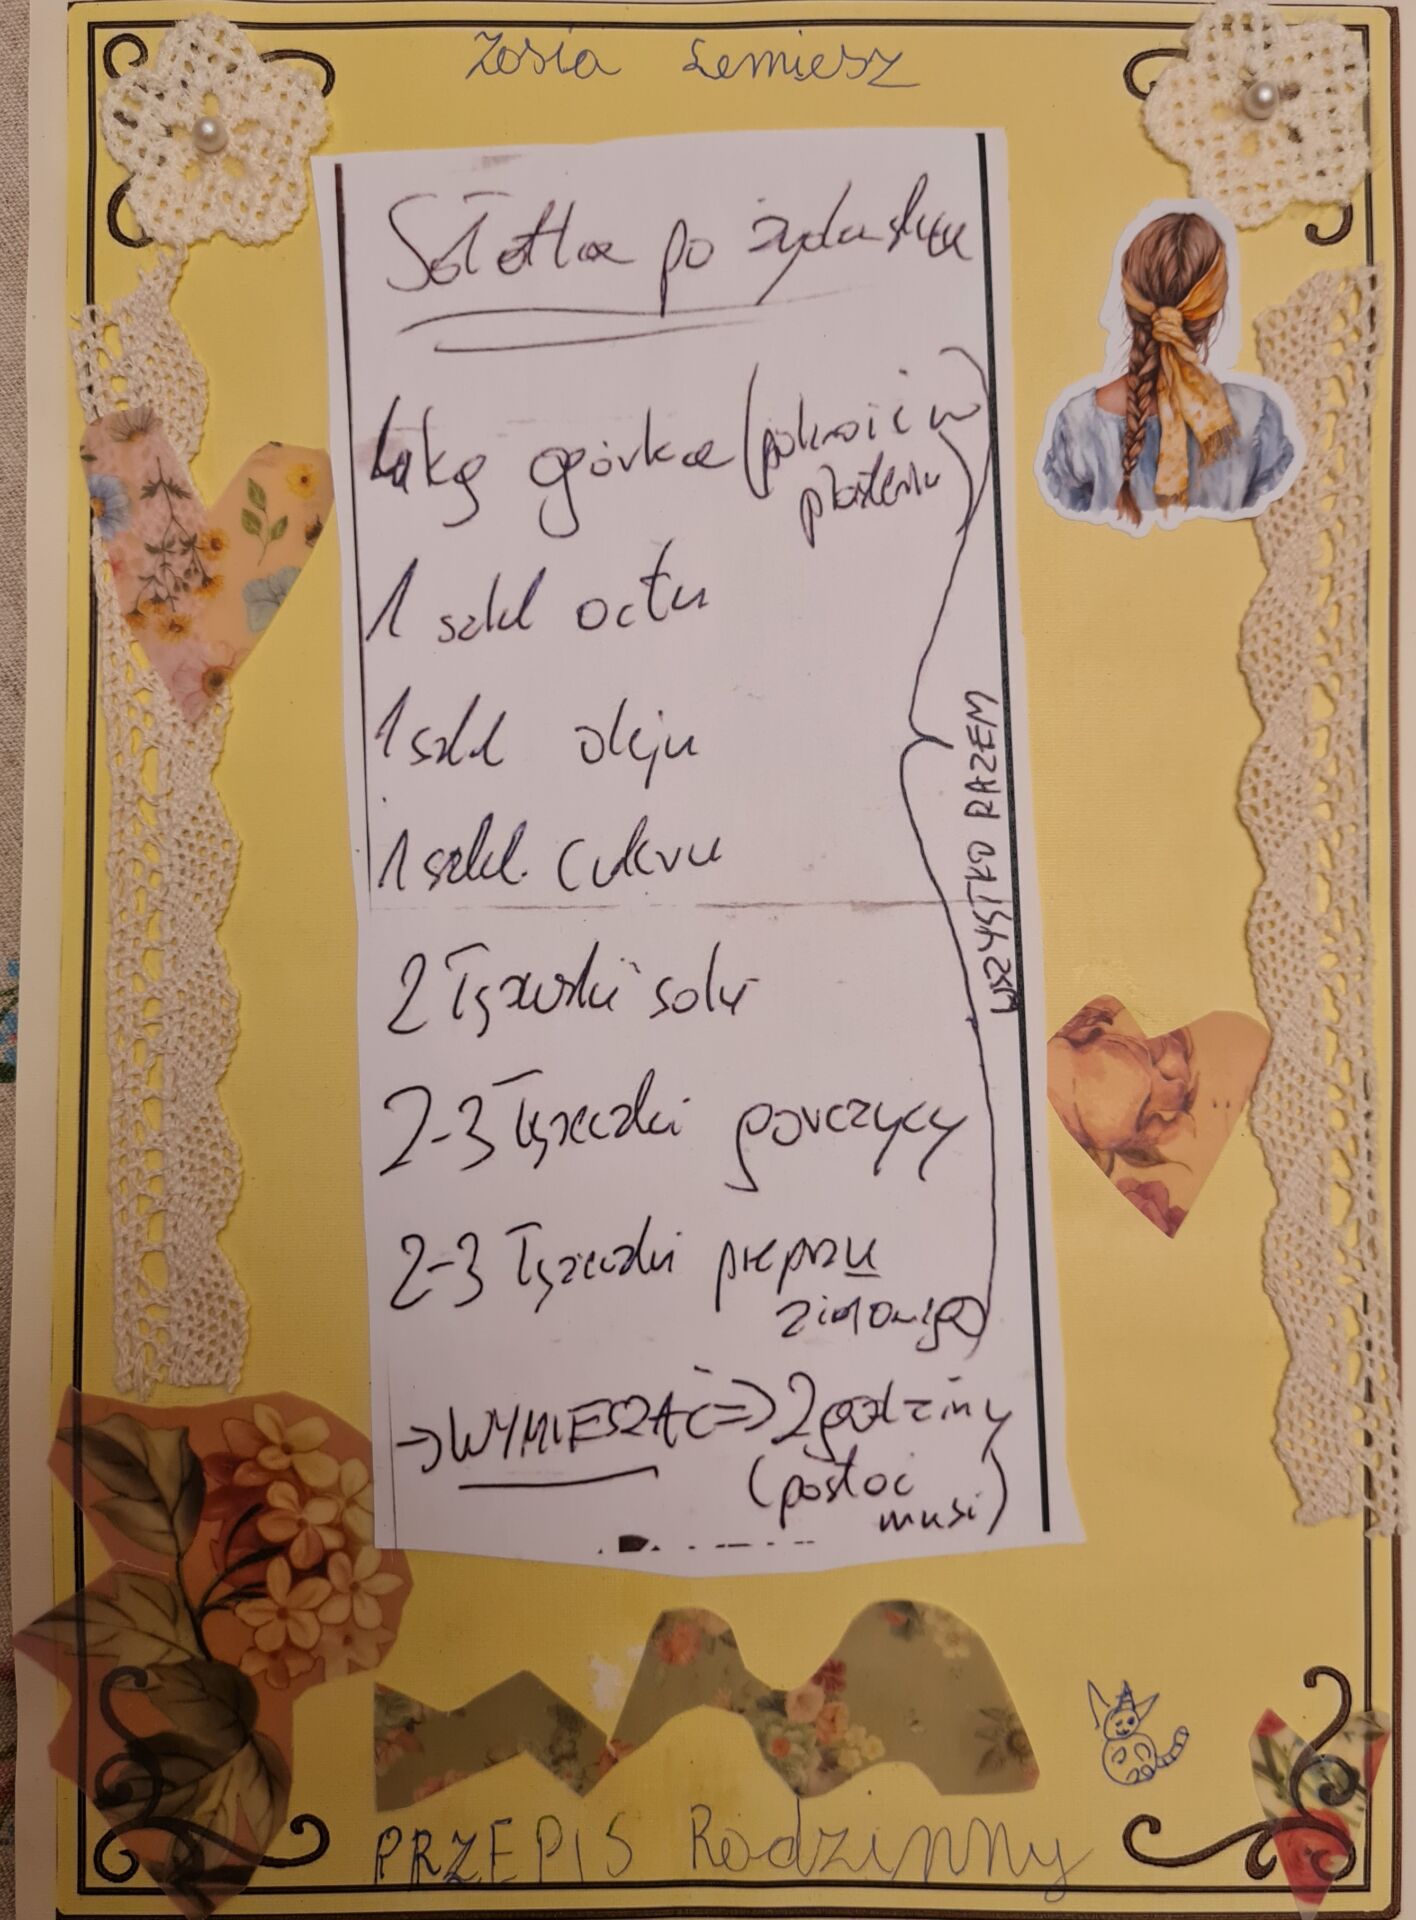 Zosia Łemiesz
Sałatka po żydowsku
4 kg ogórka (pokroić w
plasterki)
1 szkl octu
1 szkl oleju
1 szkl. cukru
2 łyżeczki soli
2-3 łyżeczki gorczycy
2-3 łyżeczki pieprzu
ziołowego
WSZYSTKO RAZEM
→ WYMIESZAĆ => 2 godziny
(postać
musi)
PRZEPIS Rodzinny